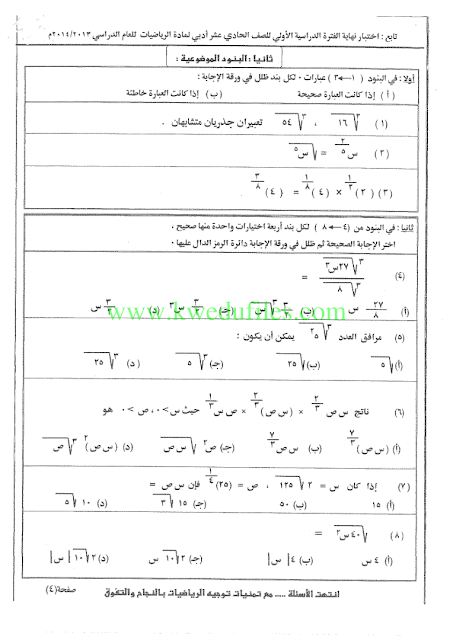 تابع : اختبار نهاية الفترة الدراسية الأولي للصف الحادي عشر أدبي لمادة الرياضيات للعام الدراسي ٢٠١٣/٢٠١٤م
ثانيا : البنود الموضوعية :
أولا : في البنود ( ١ ← ٣ ) عبارات ٠ لكل بند ظلل في ورقة الإجابة :
( أ ) إذا كانت العبارة صحيحة ( ب ) إذا كانت العبارة خاطئة
(١) ∛١٦ ، ∛٥٤ تعبيران جذريان متشابهان .
(٢) س^(٢/٥) = √س^٥
(٣) (٢)^(١/٢) × (٤)^(١/٨) = (٤)^(٣/٨)
ثانيا : في البنود من (٤ ← ٨ ) لكل بند أربعة اختيارات واحدة منها صحيح ،
اختر الإجابة الصحيحة ثم ظلل في ورقة الإجابة دائرة الرمز الدال عليها ٠
(٤) ∛٢٧س^٣ / ∛٨ =
(أ) ٢٧/٨ س (ب) ٣/٢ √س (جـ) ٣/٢ س^٣ (د) ٣/٢ س
www.kwedufiles.com
(٥) مرافق العدد ∛٢٥ يمكن أن يكون :
(أ) √٥ (ب) √٢٥ (جـ) ∛٥ (د) ∛٢٥
(٦) ناتج س ص^(٢/٣) × (س ص)^(٢/٣) × ص س^(١/٣) حيث س > ٠ ، ص > ٠ هو
(أ) (س ص)^(٧/٣) (ب) س ص^(٧/٣) (جـ) ص^٢ √س ص (د) (س ص)^٢ ∛ص
(٧) إذا كان س = ٢√١٢٥ ، ص = (٢٥)^(١/٤) فإن س ص =
(أ) ١٥ (ب) ٥٠ (جـ) ١٥√٣ (د) ١٠√٥
(٨) √٤٠س^٢ =
(أ) ٤ س (ب) ٤|س| (جـ) ٢√١٠ س (د) ٢√١٠ |س|
انتهت الأسئلة ..... مع تمنيات توجيه الرياضيات بالنجاح والتفوق صفحة(٤)